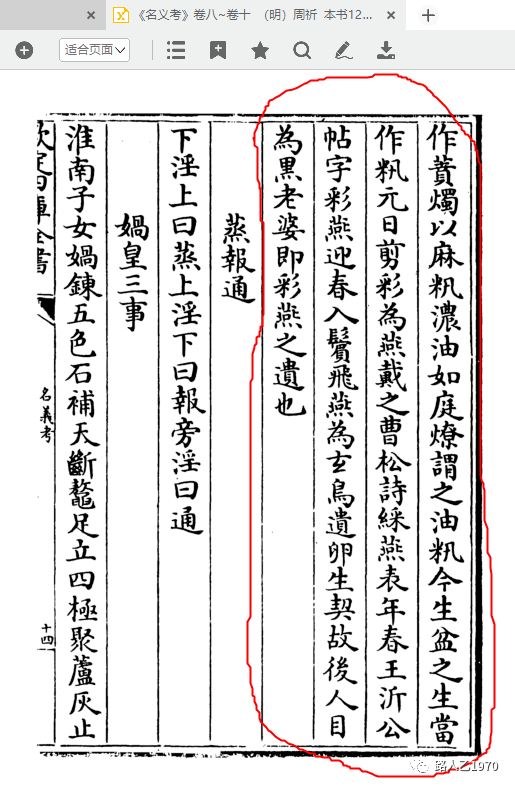 《名义考》卷八~卷十 （明）周祈 本书12...
适合页面
作蕡燭以麻籸濃油如庭燎謂之油籸今生盆之生當
作籸元日剪彩為燕戴之曹松詩綵燕表年春王沂公
帖字彩燕迎春入鬢飛燕為玄鳥遺卵生契故後人目
為黒老婆即彩燕之遺也
蒸報通
下淫上曰蒸上淫下曰報旁淫曰通
媧皇三事
淮南子女媧鍊五色石補天斷鼇足立四極聚蘆灰止
欽定四庫全書
名義考
十四
路人乙1970